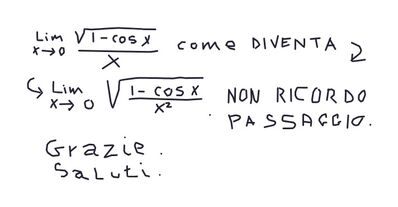 Lim x→0 √(1-cos x) / x come DIVENTA
Lim x→0 √((1-cos x) / x²). NON RICORDO
PASSAGGIO.
Grazie.
Saluti.